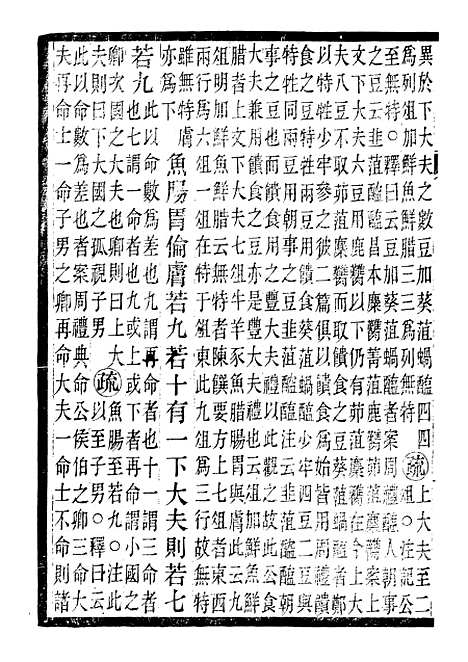 異於下大夫之數豆加葵菹蝸醢四四 疏 上大夫至二
為列俎加鮮魚鮮腊三三為列無特 俎○注記公
至無特○釋曰云豆加葵菹蝸醢者案周禮醢人朝事
之豆云韭菹醓醢昌本麋臡菁菹鹿臡茆菹麋臡案上
文下大夫六豆用鹿臡以上仍有茆菹麋臡在今上大
夫八豆不取茆菹麋臡而取饋食之豆葵菹蝸醢者鄭
以特牲少牢參之彼二篇俱以饋食為始皆用周禮饋
食之豆特牲兩豆用饋食葵菹蝸醢少牢四豆二豆與
特牲同兩豆用朝事之豆韭菹醓醢注云韭菹醓醢朝
事之豆也而饋食用之豐大夫禮葵菹此公食
大夫兼用饋食之豆亦是豐大夫禮也云俎加鮮魚鮮
腊者上文下大夫七俎牛羊豕魚腊腸胃與膚此云九
俎明加鮮魚鮮腊云無特者陳饌要方上七俎東西
兩行為六俎一俎在特于俎東此九俎為三行故無特
雖無特膚
亦為下 魚腸胃倫膚若九若十有一下大夫則若七
若九 此以命數為差也九謂再命者也十一謂三命者
也七謂一命者也九或上或下者再命謂小國之
卿次國之大夫也卿則曰上大
夫則曰下大國之孤視子男 疏 魚腸至若九○注此
以至子男○釋曰云
此以命數為差也者案周禮典命公侯伯之卿三命大
夫再命士一命子男之卿再命大夫一命士不命則諸